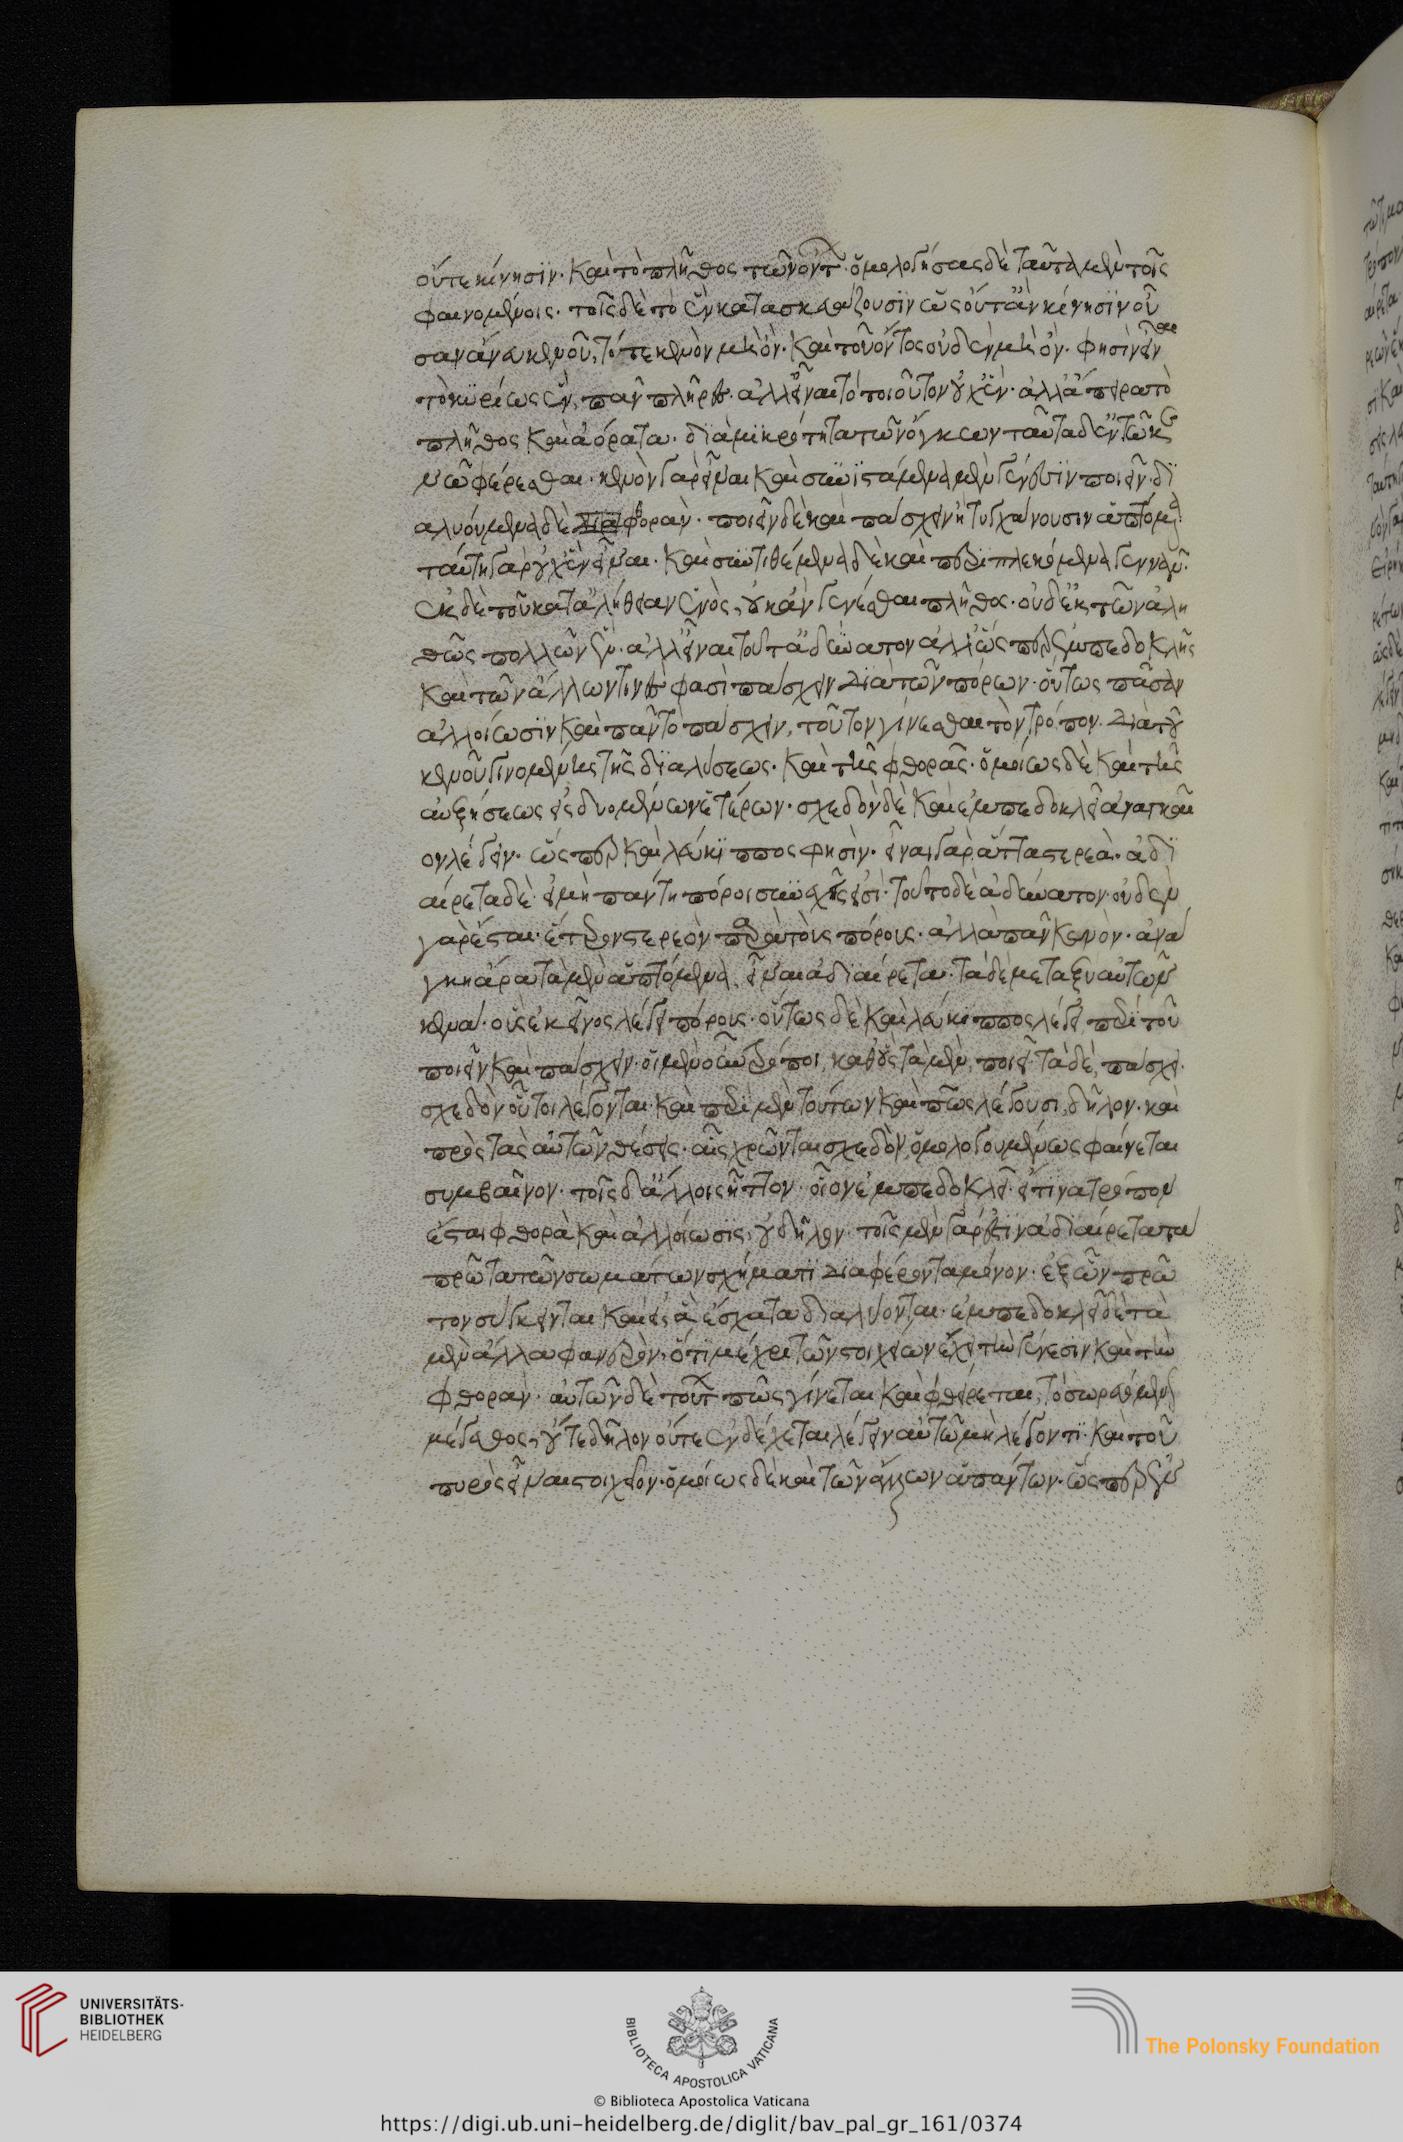 οὔτε κίνησϊν· καὶ τὸ πλῆθος τῶν ὄντ· ὁμολογήσας δὲ ταῦτα μὲν τοῖς
φαινομένοις· τοῖς δὲ τὸ ἓν κατασκευάζουσϊν ὡς οὔτ' ἂν κίνησϊν οὖ
σαν ἄνευ κενοῦ, τό τε κενὸν μὴ ὄν· καὶ τοῦ ὄντος οὐδὲν μὴ ὄν· φησὶν εἶν
τὸ κϋρίως ὄν, παν πλῆρες· ἀλλ' εἶναι τὸ τοιοῦτον οὐχ ἕν· ἀλλ' ἄπειρα τὸ
πλῆθος καὶ ἀόρατα· δϊὰ μϊκρότητα τῶν ὄγκων ταῦτα δ' ἐν τῶ κε
νῶ φέρεσθαι· κενὸν γὰρ εἶναι καὶ συνϊστάμενα μὲν γένεσϊν ποιεῖν· δϊ
αλυόμενα δὲ φθοράν· ποιεῖν δὲ καὶ πάσχειν ἧ τυγχάνουσιν ἁπτόμενα·
ταύτη γὰρ οὐχ ἓν εἶναι· καὶ συντιθέμενα δὲ καὶ περϊπλεκόμενα γεννᾶν·
ἐκ δὲ τοῦ κατ' ἀλήθειαν ἑνὸς, οὐκ ἂν γενέσθαι πλῆθος· οὐδ' ἐκ τῶν ἀλη
θῶς πολλῶν ἕν· ἀλλ' εἶναι τοῦτ' ἀδύνατον ἀλλ' ὥσπερ ἐμπεδοκλῆς
καὶ τῶν ἄλλων τινές φασὶ πάσχειν διὰ τῶν πόρων· οὕτως πᾶσαν
ἀλλοίωσϊν καὶ πᾶν τὸ πάσχειν, τοῦτον γίνεσθαι τὸν τρόπον. διὰ τοῦ
κενοῦ γινομένης τῆς δϊαλύσεως· καὶ τῆς φθορᾶς· ὁμοίως δὲ καὶ τῆς
αὐξήσεως εἰσδυομένων ἑτέρων· σχεδὸν δὲ καὶ ἐμπεδοκλεῖ ἀναγκαῖ
ον λέγειν· ὥσπερ καὶ λεύκϊππος φησὶν· εἶναι γὰρ ἄττα στερεὰ· ἀδϊ
αίρετα δὲ· εἰ μὴ πάντη πόροι συνεχεῖς εἰσὶ· τοῦτο δὲ ἀδύνατον· οὐδὲν
γὰρ ἔσται· ἕτερον στερεὸν παρὰ τοὺς πόρους· ἀλλὰ πᾶν κενὸν· ἀνά
γκη ἄρα τὰ μὲν ἁπτόμενα, εἶναι ἀδϊαίρετα· τὰ δὲ μεταξὺ αὐτῶν
κενά· οὓς ἐκεῖνος λέγει πόρους· οὕτως δὲ καὶ λεύκϊππος λέγει περὶ τοῦ
ποιεῖν καὶ πάσχειν· οἱ μὲν οὖν τρόποι, καθ' οὓς τὰ μὲν, ποιεῖ· τὰ δὲ, πάσχει·
σχεδὸν οὗτοι λέγονται· καὶ περὶ μὲν τούτων καὶ πῶς λέγουσι, δῆλον· καὶ
πρὸς τὰς αὑτῶν θέσεις· αἷς χρῶνται σχεδὸν, ὁμολογουμένως φαίνεται
συμβαῖνον· τοῖς δ' ἄλλοις ἧττον· οἷον ἐμπεδοκλεῖ· τίνα τρόπον
ἔσται φθορὰ καὶ ἀλλοίωσϊς, οὐ δῆλον· τοῖς μὲν γάρ ἐστϊν ἀδϊαίρετα τὰ
πρῶτα τῶν σωμάτων σχήματϊ διαφέροντα μόνον· ἐξ ὧν πρῶ
τον σύγκειται καὶ εἰς ἃ ἔσχατα διαλύονται· ἐμπεδοκλεῖ δὲ τὰ
μὲν ἄλλα φανερὸν· ὅτϊ μέχρι τῶν στοιχείων ἔχει τὴν γένεσιν καὶ τὴν
φθοράν· αὐτῶν δὲ τούτ πῶς γίνεται καὶ φθείρεται, τὸ σωρευόμενον
μέγεθος, οὔτε δῆλον οὔτε ἐνδέχεται λέγειν αὐτῶ μὴ λέγοντϊ· καὶ τοῦ
πυρὸς εἶναι στοιχεῖον· ὁμοίως δὲ καὶ τῶν ἄλλων ἁπάντων· ὥσπερ ἐν
UNIVERSITÄTS-
BIBLIOTHEK
HEIDELBERG
BIBLIOTECA APOSTOLICA VATICANA
The Polonsky Foundation
© Biblioteca Apostolica Vaticana
https://digi.ub.uni-heidelberg.de/diglit/bav_pal_gr_161/0374